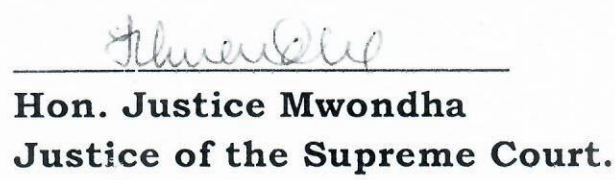 Hon. Justice Mwondha
Justice of the Supreme Court.